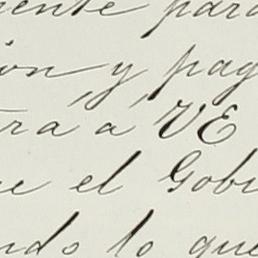 mente para
ión y pag
trá a' VE
ue el Gobi
ndo lo que